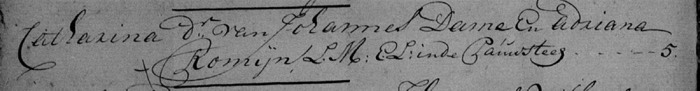 Catharina dr. van Johannes Dame En Adriana
Romijn, L.M: E L: inde Pauwsteeg ----- 5.